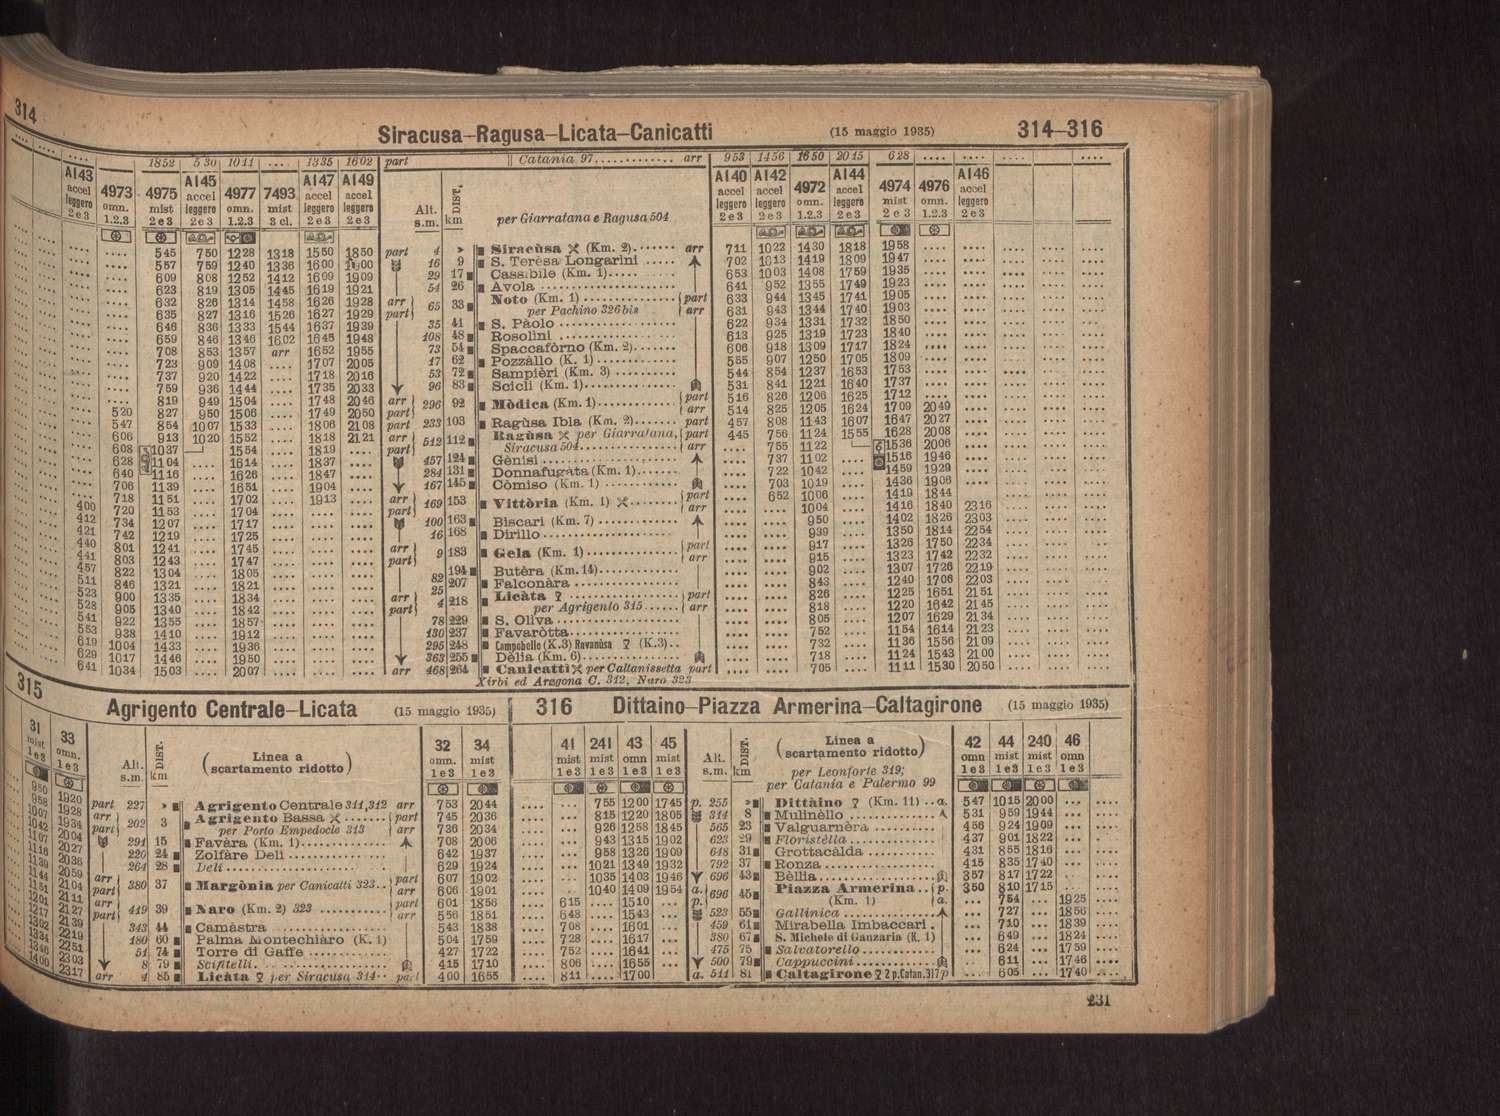 314
Siracusa–Ragusa–Licata–Canicatti (15 maggio 1935) 314–316
1852 530 1011 .... 1335 1602 part Catania 97 arr 953 1456 1650 2015 628
A143 4973 4975 A145 4977 7493 A147 A149 Alt. DIST. A140 A142 4972 A144 4974 4976 A146
accel omn. mist accel omn. mist accel accel s.m. km per Giarratana e Ragusa 504 accel accel omn. accel mist omn. accel
leggero 1.2.3 2 e 3 leggero 1.2.3 3 cl. leggero leggero leggero leggero 1.2.3 leggero 2 e 3 1.2.3 leggero
2 e 3 2 e 3 2 e 3 2 e 3 2 e 3 2 e 3 2 e 3 2 e 3
545 750 1228 1318 1550 1850 part 4 » Siracùsa (Km. 2) arr 711 1022 1430 1818 1958
557 759 1240 1336 1600 1900 16 9 S. Terèsa Longarini 702 1013 1419 1809 1947
609 808 1252 1412 1609 1909 29 17 Cassìbile (Km. 1) 653 1003 1408 1759 1935
623 819 1305 1445 1619 1921 54 26 Àvola 641 952 1355 1749 1923
632 826 1314 1458 1626 1928 arr 65 33 Noto (Km. 1) part 633 944 1345 1741 1905
635 827 1316 1526 1627 1929 part per Pachino 326 bis arr 631 943 1344 1740 1903
646 836 1333 1544 1637 1939 35 41 S. Pàolo 622 934 1331 1732 1850
659 846 1346 1602 1645 1948 108 48 Rosolini 613 925 1319 1723 1840
708 853 1357 arr 1652 1955 73 54 Spaccafòrno (Km. 2) 606 918 1309 1717 1824
723 909 1408 .... 1707 2005 17 62 Pozzàllo (K. 1) 555 907 1250 1705 1809
737 920 1422 .... 1718 2016 53 72 Sampièri (Km. 3) 544 854 1237 1653 1753
759 936 1444 .... 1735 2033 96 83 Scicli (Km. 1) 531 841 1221 1640 1737
819 949 1504 .... 1748 2046 arr 296 92 Mòdica (Km. 1) part 516 826 1206 1625 1712
520 827 950 1506 .... 1749 2050 part arr 514 825 1205 1624 1709 2049
547 854 1007 1533 .... 1806 2108 part 233 103 Ragùsa Ibla (Km. 2) part 457 808 1143 1607 1647 2027
606 913 1020 1552 .... 1818 2121 arr 512 112 Ragùsa per Giarratana, part 445 756 1124 1555 1628 2008
608 1037 1554 .... 1819 part Siracusa 504 arr .... 755 1122 1536 2006
628 1104 .... 1614 .... 1837 457 124 Gènisi .... 737 1102 .... 1516 1946
640 1116 .... 1626 .... 1847 284 131 Donnafugàta (Km. 1) .... 722 1042 .... 1459 1929
706 1139 .... 1651 .... 1904 167 145 Còmiso (Km. 1) .... 703 1019 .... 1436 1906
718 1151 .... 1702 .... 1913 arr 169 153 Vittòria (Km. 1) part .... 652 1006 .... 1419 1844
400 720 1153 .... 1704 part arr .... .... 1004 .... 1416 1840 2316
412 734 1207 .... 1717 100 163 Biscari (Km. 7) .... .... 950 .... 1402 1826 2303
421 742 1219 .... 1725 16 168 Dirillo .... .... 939 .... 1350 1814 2254
440 801 1241 .... 1745 arr 9 183 Gela (Km. 1) part .... .... 917 .... 1326 1750 2234
441 803 1243 .... 1747 part arr .... .... 915 .... 1323 1742 2232
457 822 1304 .... 1805 82 194 Butèra (Km. 14) .... .... 902 .... 1307 1726 2219
511 846 1321 .... 1821 25 207 Falconàra .... .... 843 .... 1240 1706 2203
523 900 1335 .... 1834 arr 4 218 Licàta part .... .... 826 .... 1225 1651 2151
528 905 1340 .... 1842 part per Agrigento 315 arr .... .... 818 .... 1220 1642 2145
541 922 1355 .... 1857 78 229 S. Oliva .... .... 805 .... 1207 1629 2134
553 938 1410 .... 1912 130 237 Favaròtta .... .... 752 .... 1154 1614 2123
619 1004 1433 .... 1936 295 248 Campobello (K.3) Ravanùsa (K.3) .... .... 732 .... 1136 1556 2109
629 1017 1446 .... 1950 363 255 Dèlia (Km. 6) .... .... 718 .... 1124 1543 2100
641 1034 1503 .... 2007 arr 468 264 Canicatti per Caltanissetta part .... .... 705 .... 1111 1530 2050
Xirbi ed Aragona C. 312, Naro 323
315 Agrigento Centrale–Licata (15 maggio 1935)
31 33 Alt. DIST. Linea a 32 34
mist omn. s.m. km (scartamento ridotto) omn. mist
1 e 3 1 e 3 1 e 3 1 e 3
950 1920 part 227 » Agrigento Centrale 311,312 arr 753 2044
958 1928 arr 202 3 Agrigento Bassa part 745 2036
1007 1934 part per Porto Empedocle 313 arr 736 2034
1042 2004 291 15 Favàra (Km. 1) 708 2006
1107 2027 220 24 Zolfàre Deli 642 1937
1116 2036 264 28 Deli 629 1924
1139 2059 arr 380 37 Margònia per Canicatti 323 part 607 1902
1144 2104 part arr 606 1901
1151 2111 arr 419 39 Naro (Km. 2) 323 part 601 1856
1201 2127 part arr 556 1851
1217 2139 343 44 Camàstra 543 1838
1312 2219 180 60 Palma Montechiàro (K. 1) 504 1759
1334 2251 51 74 Torre di Gaffe 427 1722
1346 2303 8 79 Scifitelli 415 1710
1400 2317 arr 4 85 Licàta per Siracusa 314 part 400 1655
316 Dittaino–Piazza Armerina–Caltagirone (15 maggio 1935)
41 241 43 45 Alt. DIST. Linea a 42 44 240 46
mist mist mist mist s.m. km (scartamento ridotto) omn mist mist omn
1 e 3 1 e 3 1 e 3 1 e 3 per Leonforte 319; 1 e 3 1 e 3 1 e 3 1 e 3
per Catania e Palermo 99
.... 755 1200 1745 p. 255 » Dittàino (Km. 11) a. 547 1015 2000
.... 815 1220 1805 314 8 Mulinèllo 531 959 1944
.... 926 1258 1845 565 23 Valguarnèra 456 924 1909
.... 943 1315 1902 623 29 Floristèlla 437 901 1822
.... 958 1326 1909 648 31 Grottacàlda 431 855 1816
.... 1021 1349 1932 792 37 Ronza 415 835 1740
.... 1035 1403 1946 696 43 Bèllia 357 817 1722
.... 1040 1409 1954 a. 696 45 Piazza Armerina p. 350 810 1715
615 .... 1510 p. (Km. 1) a. ... 754 ... 1925
648 .... 1543 523 55 Gallinica ... 727 ... 1856
708 .... 1601 459 61 Mirabella Imbaccari ... 710 ... 1839
728 .... 1617 380 67 S. Michele di Ganzaria (K. 1) ... 649 ... 1824
752 .... 1641 475 75 Salvatorello ... 624 ... 1759
806 .... 1655 500 79 Cappuccini ... 611 ... 1746
811 .... 1700 a. 511 81 Caltagirone 2 p. Catan. 317 p ... 605 ... 1740
231